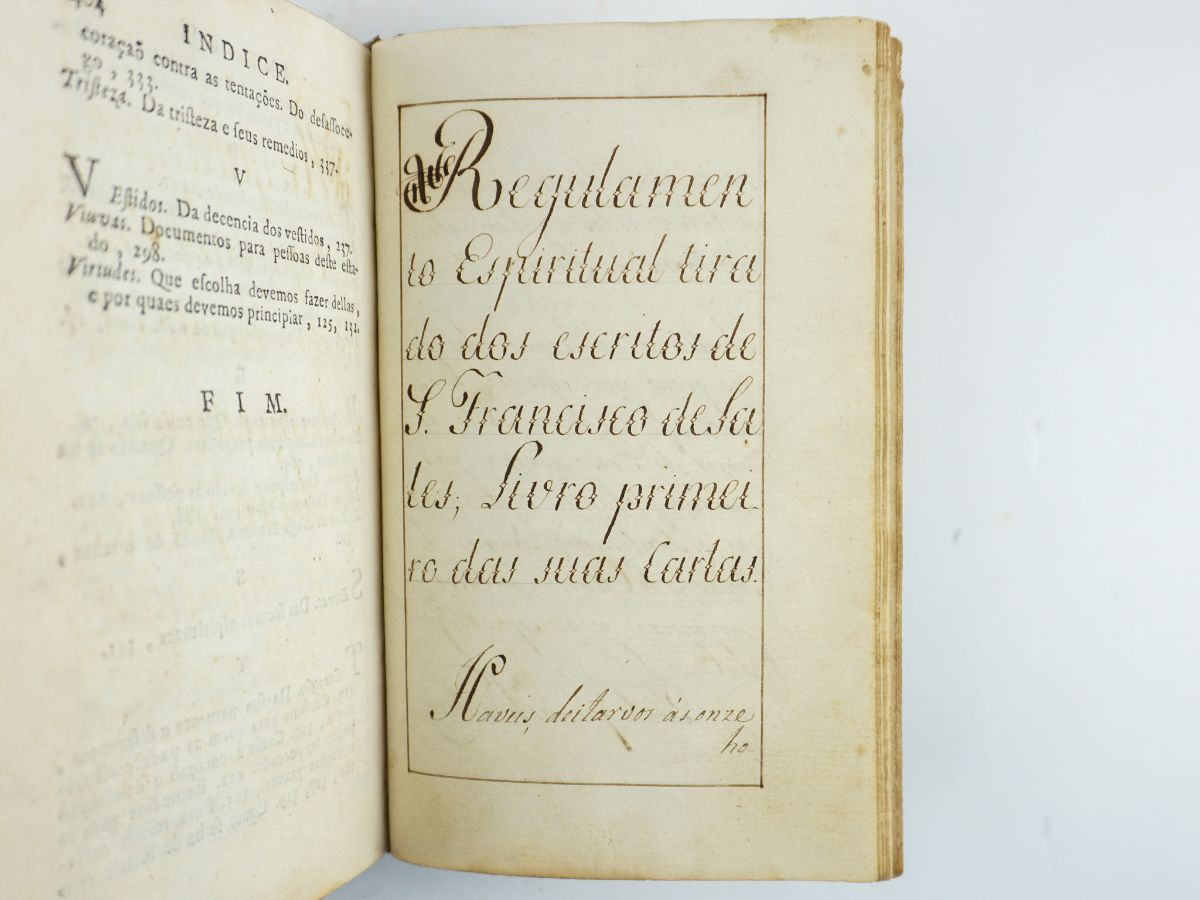 404
INDICE.
coraçaõ contra as tentações. Do deſaſſoce-
go, 333.
Triſteza. Da triſteza e ſeus remedios, 337.
V
VEſtidos. Da decencia dos veſtidos, 237.
Viuvas. Documentos para peſſoas deſte eſta-
do, 298.
Virtudes. Que eſcolha devemos fazer dellas,
e por quaes devemos principiar, 125, 132.
FIM.
Regulamen
to Espiritual tira
do dos escritos de
S. Francisco de Sa
les; Livro primei-
ro das suas Cartas.
Haveis, deitarvos ás onze
ho-